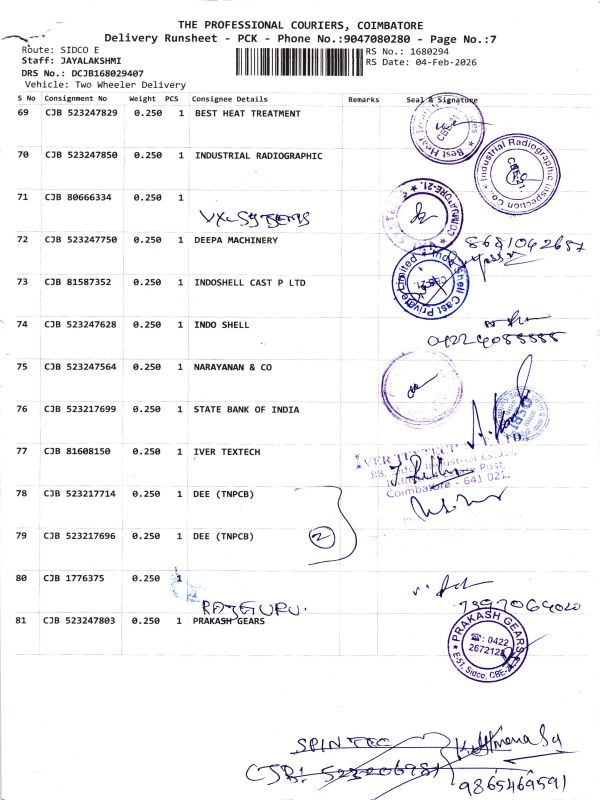 THE PROFESSIONAL COURIERS, COIMBATORE
Delivery Runsheet - PCK - Phone No.:9047080280 - Page No.:7
Route: SIDCO E
Staff: JAYALAKSHMI
DRS No.: DCJB168029407
Vehicle: Two Wheeler Delivery
RS No.: 1680294
RS Date: 04-Feb-2026
S No Consignment No Weight PCS Consignee Details Remarks Seal & Signature
69 CJB 523247829 0.250 1 BEST HEAT TREATMENT
CBE-21
70 CJB 523247850 0.250 1 INDUSTRIAL RADIOGRAPHIC
Industrial Radiographic Inspection Co.
CBE-21.
71 CJB 80666334 0.250 1
VX-SYSTEMS
72 CJB 523247750 0.250 1 DEEPA MACHINERY
8681042687
73 CJB 81587352 0.250 1 INDOSHELL CAST P LTD
Indo Shell Cast Private Limited
74 CJB 523247628 0.250 1 INDO SHELL
0422 4088888
75 CJB 523247564 0.250 1 NARAYANAN & CO
76 CJB 523217699 0.250 1 STATE BANK OF INDIA
77 CJB 81608150 0.250 1 IVER TEXTECH
IVER TEXTECH
Coimbatore - 641 021.
78 CJB 523217714 0.250 1 DEE (TNPCB)
79 CJB 523217696 0.250 1 DEE (TNPCB)
2
80 CJB 1776375 0.250 1
RAJGURU.
7397064020
81 CJB 523247803 0.250 1 PRAKASH GEARS
PRAKASH GEARS
☎: 0422
2672125
E-51, Sidco, CBE-21
SPINTEC
CJB: 523206981
9865469591